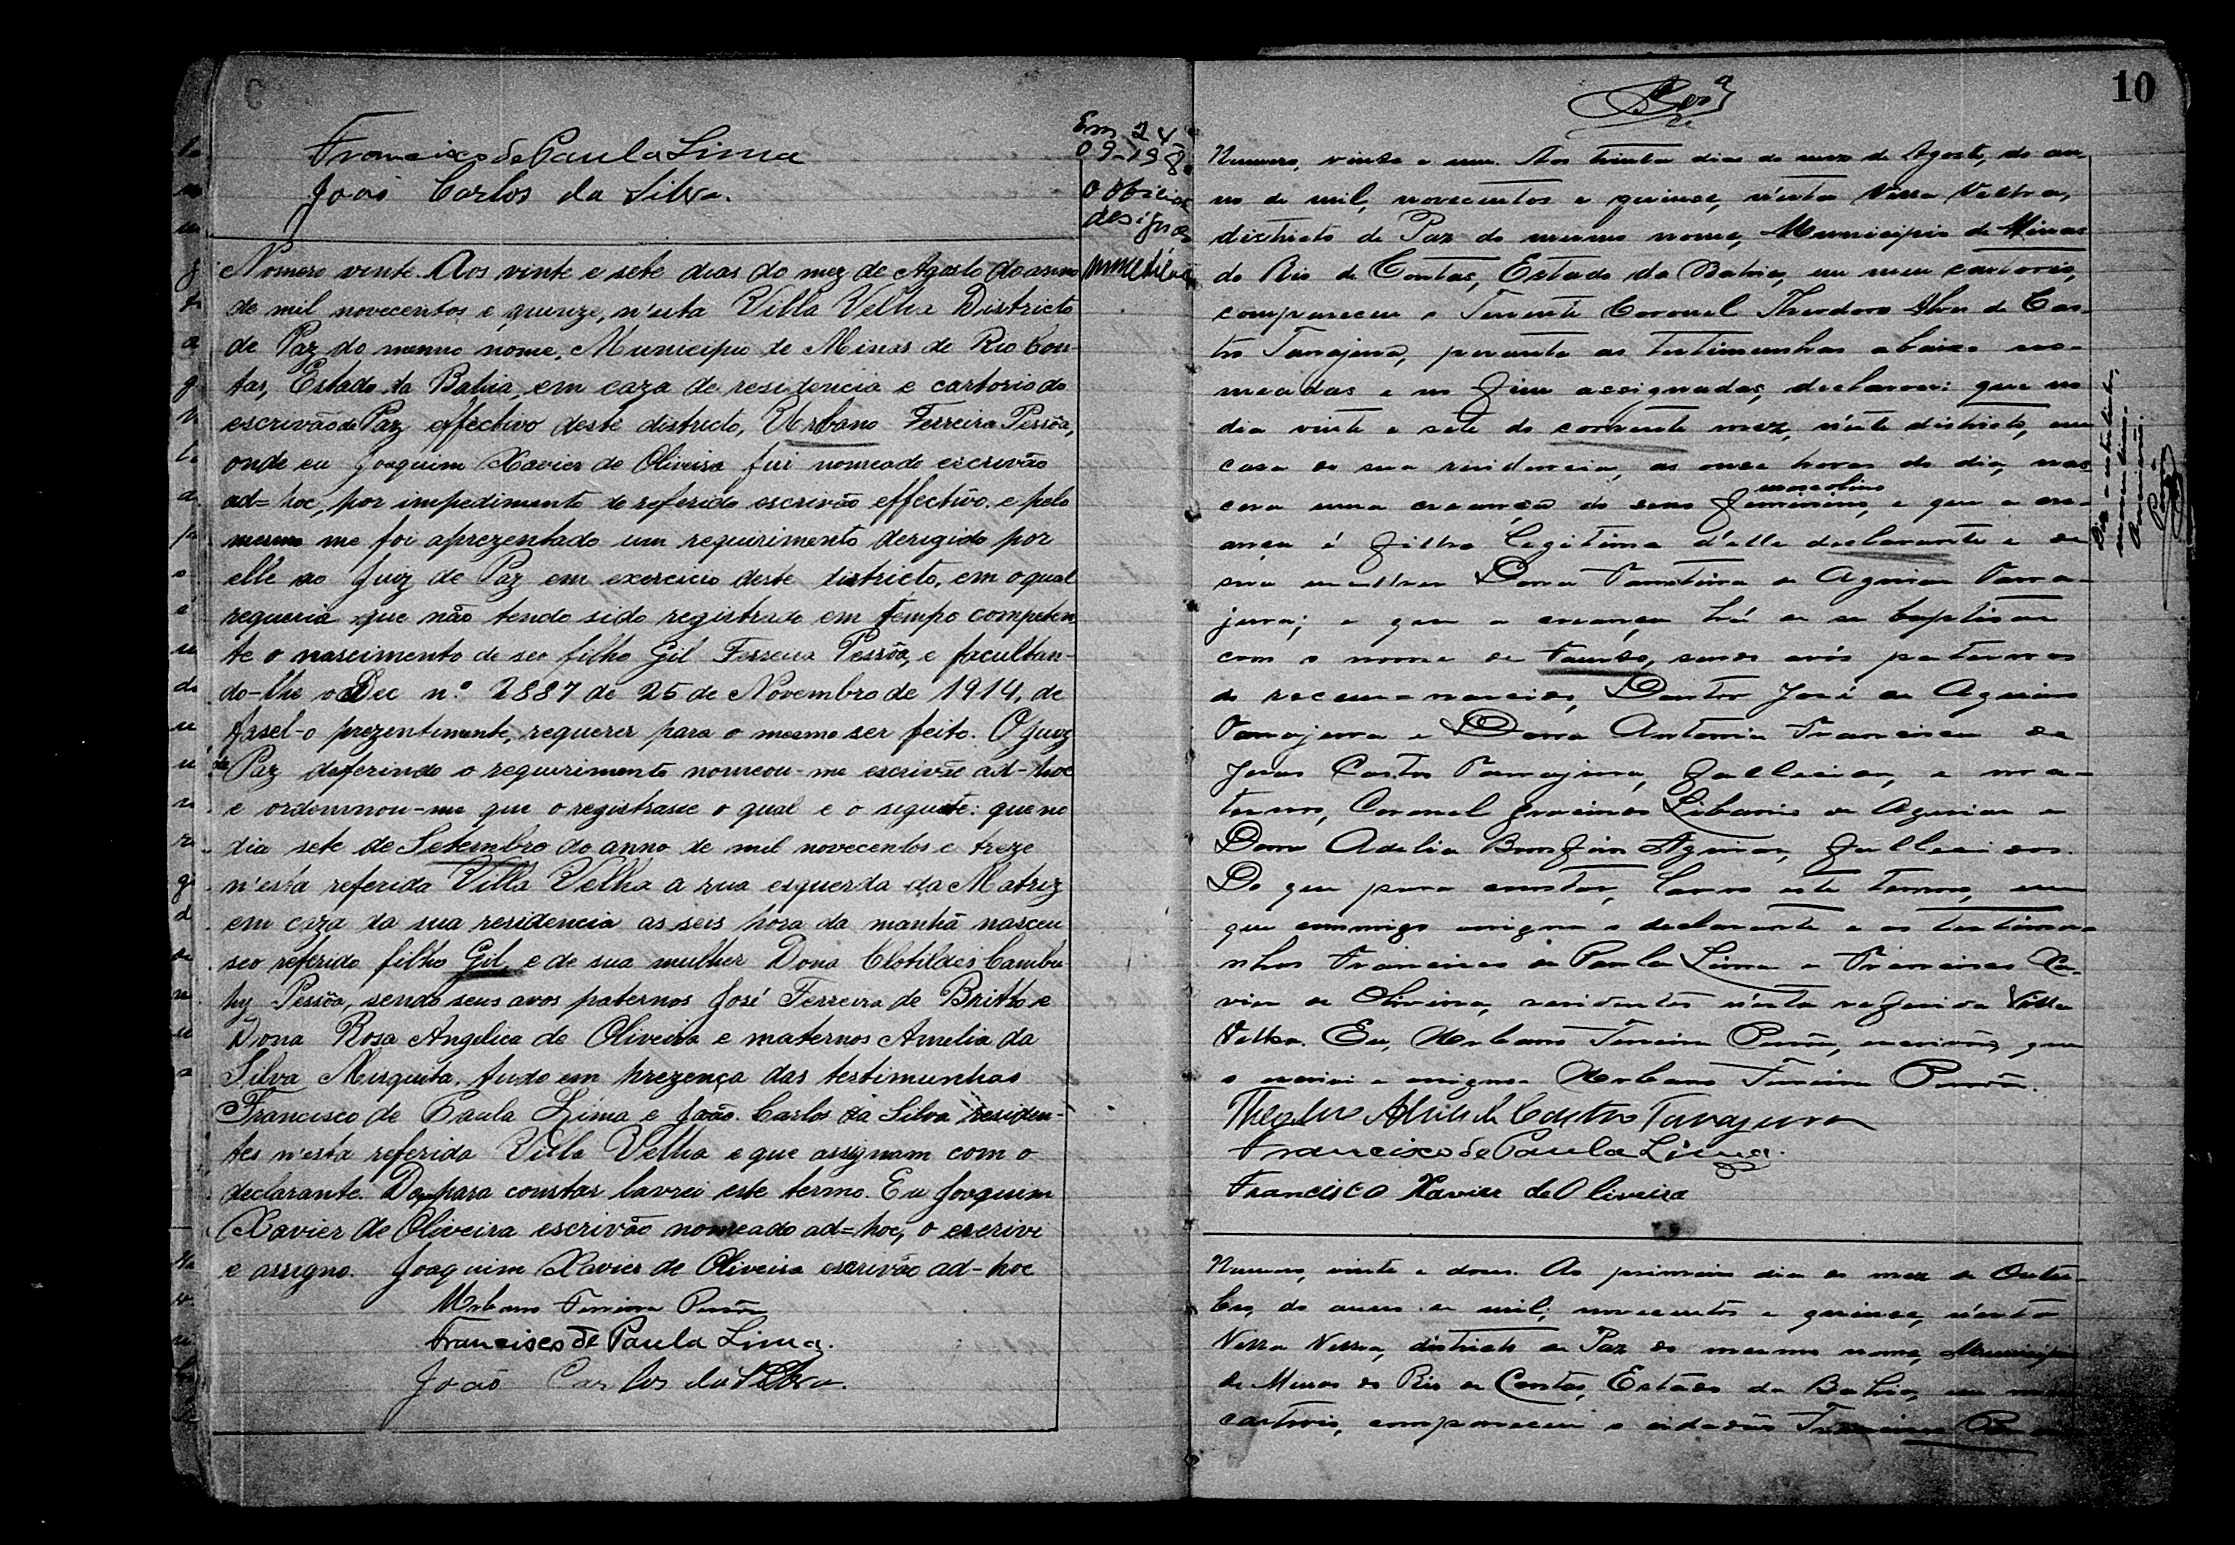 Francisco de Paula Lima
João Carlos da Silva.
Em 24
09-198
o oficial
desig
Nomero vinte. Aos vinte e sete dias do mez de Agosto do anno
de mil novecentos e quinze, n'esta Villa Velha Districto
de Paz do mesmo nome, Municipio de Minas do Rio Con-
tas, Estado da Bahia, em caza de residencia e cartorio do
escrivão de Paz effectivo deste districto, Urbano Ferreira Pessôa,
onde eu Joaquim Xavier de Oliveira fui nomeado escrivão
ad=hoc, por impedimento do referido escrivão effectivo. e pelo
mesmo me foi aprezentado um requirimento derigido por
elle ao Juiz de Paz em exercicio deste districto, em o qual
requeria que não tendo sido registrado em tempo competen
te o nascimento de seo filho Gil Ferreira Pessôa, e facultan-
do-lhe o Dec nº 2887 de 25 de Novembro de 1914, de
fasel-o prezentimente, requerer para o mesmo ser feito. O Juiz
de Paz deferindo o requirimento nomeou-me escrivão ad-hoc
e ordemnou-me que o registrasse o qual e o seguite: que no
dia sete de Setembro do anno de mil novecentos e treze
n'esta referida Villa Velha a rua esquerda da Matriz
em caza da sua residencia as seis hora da manhã nasceu
seo referido filho Gil e de sua mulher Dona Clotildes Cambu
hy Pessôa, sendo seus avos paternos José Ferreira de Britto e
Dona Rosa Angelica de Oliveira e maternos Amelia da
Silva Misquita. tudo em prezença das testimunhas
Francisco de Paula Lima e João Carlos da Silva residen-
tes n'esta referida Villa Velha e que assignam com o
declarante. Do que para constar lavrei este termo. Eu Joaquim
Xavier de Oliveira escrivão nomeado ad=hoc, o escrivi
e assigno. Joaquim Xavier de Oliveira escrivão ad-hoc
Urbano Ferreira Pessôa
Francisco de Paula Lima.
João Carlos da Silva.
10
Numero, vinte e um. Aos trinta dias do mez de Agosto, do an-
no de mil, novecentos e quinze, n'esta Villa Velha,
districto de Paz do mesmo nome, Municipio de Minas
do Rio de Contas, Estado da Bahia, em meu cartorio,
compareceu o Tenente Coronel Theodoro Alves de Cas-
tro Tanajura, perante as testimunhas abaixo no-
meadas e no fim assignadas, declarou: que no
dia vinte e sete do corrente mez, n'este districto, em
casa de sua residencia, as onze horas do dia, nas
ceu uma creança do sexo feminino, e que a cre-
masculino
ança é filho legitimo d'elle declarante e de
sua mulher Dona Faustina de Aguiar Tana-
jura; e que a creança há de se baptisar
com o nome de Fausto, sendo avós paternos
do recem-nascido, Doutor José de Aquino
Tanajura e Dona Antonia Francisca de
Jesus Castro Tanajura, fallecidos, e ma-
ternos, Coronel Libanio de Aguiar e
Dona Adelia Bomfim Aguiar, fallecidos.
Do que para constar, lavro este termo, em
que commigo assigna o declarante e as testimu-
nhas Francisco de Paula Lima e Francisco Xa-
vier de Oliveira, residentes n'esta referida Villa
Velha. Eu, Urbano Ferreira Pessôa, escrivão, que
o escrivi e assigno. Urbano Ferreira Pessôa.
Theodoro Alves de Castro Tanajura
Francisco de Paula Lima.
Francisco Xavier de Oliveira
Numero, vinte e dous. Ao primeiro dia do mez de Outu-
bro, do anno de mil, novecentos e quinze, n'esta
Villa Velha, districto de Paz do mesmo nome, Municipio
de Minas do Rio de Contas, Estado da Bahia, em meu
cartorio, compareceu o cidadão